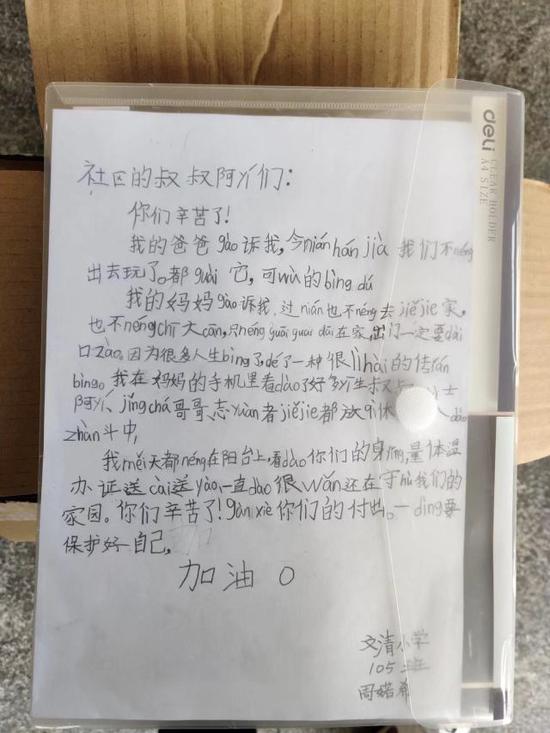 社区的叔叔阿yí们:
你们辛苦了!
我的爸爸gào诉我,今nián hán jià 我们不néng
出去玩了。都guài 它,可wù的bìng dú
我的妈妈gào诉我,过nián也不néng去jiějie家,
也不néng chī 大cān,只néng guāi guai dāi在家,出门一定要dài
口zào,因为很多人生bìng了,dé了一种很lìhài的传rǎn
bìng。我在妈妈的手机里看dào了好多yī生叔叔、士
阿yí、jǐng chá 哥哥、志yuàn者jiějie都放qì休 dào
zhàn斗中,
我měi天都néng在阳台上,看dào你们的身yǐng,量体温
办证送cài送yào,一直dào 很wǎn还在守hù我们的
家园。你们辛苦了!gǎn xiè你们的付出。一dìng要
保护好自己,
加油 O
文清小学
105班
周婼希
deli
CLEAR HOLDER
A4 SIZE